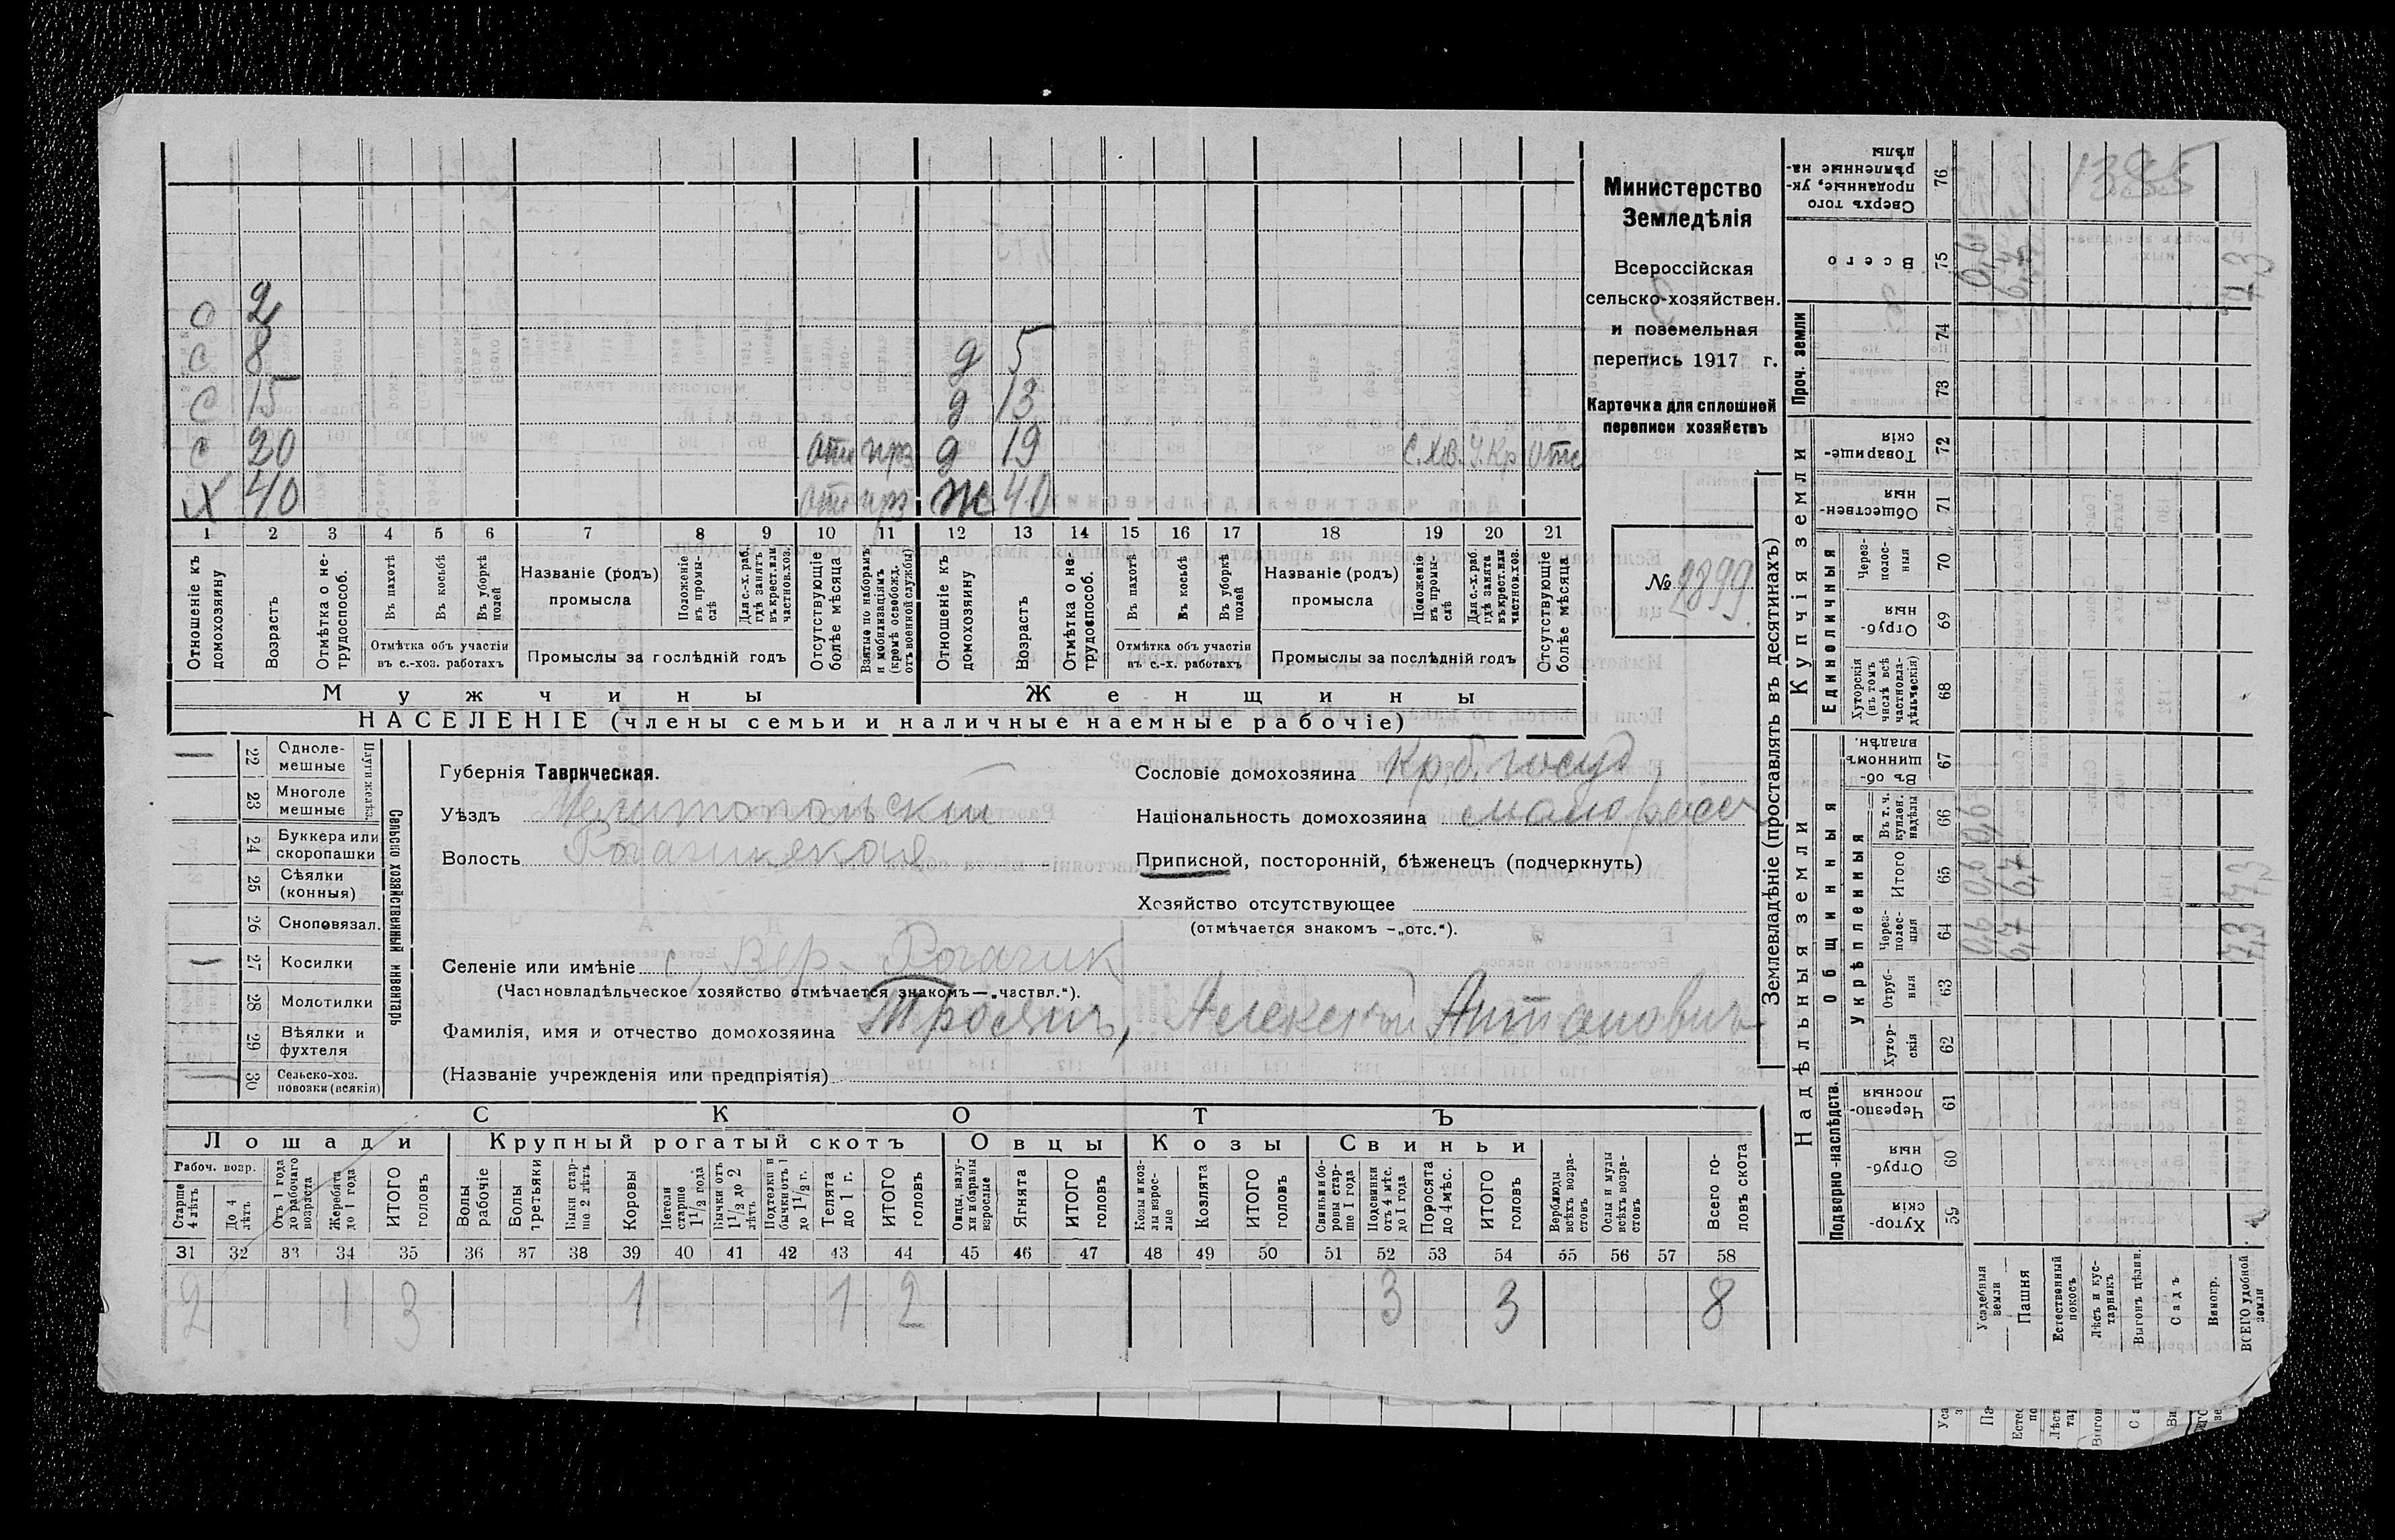 о 2
с 8 д 5
с 15 д 13
с 20 отс прз д 19 С.Хоз. Ч.Кр отс
х 40 отс прз ж 40
1 2 3 4 5 6 7 8 9 10 11 12 13 14 15 16 17 18 19 20 21
Отношеніе къ домохозяину
Возрастъ
Отмѣтка о не-трудоспособ.
Въ пахотѣ
Въ косьбѣ
Въ уборкѣ полей
Отмѣтка объ участіи въ с.-хоз. работахъ
Названіе (родъ) промысла
Положеніе въ промы-слѣ
Для с.-х. раб. гдѣ занятъ въ крест. или частнов. хоз.
Промыслы за послѣдній годъ
Отсутствующіе болѣе мѣсяца
Взятые по наборамъ и мобилизаціямъ (кромѣ освобожд. отъ военной службы)
Отношеніе къ домохозяину
Возрастъ
Отмѣтка о не-трудоспособ.
Въ пахотѣ
Въ косьбѣ
Въ уборкѣ полей
Отмѣтка объ участіи въ с.-х. работахъ
Названіе (родъ) промысла
Положеніе въ промы-слѣ
Для с.-х. раб. гдѣ занята въ крест. или частнов. хоз.
Промыслы за послѣдній годъ
Отсутствующіе болѣе мѣсяца
Мужчины Женщины
НАСЕЛЕНІЕ (члены семьи и наличные наемные рабочіе)
Министерство
Земледѣлія
Всероссійская
сельско-хозяйствен.
и поземельная
перепись 1917 г.
Карточка для сплошной
переписи хозяйствъ
№ 2899
22 Одноле-мешные
23 Многоле мешные
Плуги желѣз.
24 Буккера или скоропашки
25 Сѣялки (конныя)
26 Сноповязал.
27 Косилки
28 Молотилки
29 Вѣялки и фухтеля
30 Сельско-хоз. повозки (всякія)
Сельско хозяйственный инвентарь
Губернія Таврическая.
Уѣздъ Мелитопольскій
Волость Рогачикская
Сословіе домохозяина Кр. б. госуд
Національность домохозяина малоросс
Приписной, посторонній, бѣженецъ (подчеркнуть)
Хозяйство отсутствующее
(отмѣчается знакомъ —„отс.“).
Селеніе или имѣніе с. Вер. Рогачик
(Частновладѣльческое хозяйство отмѣчается знакомъ—„частвл.“).
Фамилія, имя и отчество домохозяина Троян, Алексѣй Антонович
(Названіе учрежденія или предпріятія)
СКОТЪ
Лошади Крупный рогатый скотъ Овцы Козы Свиньи
Рабоч. возр.
Старше 4 лѣтъ
До 4 лѣтъ
Отъ 1 года до рабочаго возраста
Жеребята до 1 года
ИТОГО головъ
Волы рабочіе
Волы третьяки
Быки стар-ше 2 лѣтъ
Коровы
Нетели старше 1½ года
Бычки отъ 1½ до 2 лѣтъ
Подтелки и бычки отъ 1 до 1½ г.
Телята до 1 г.
ИТОГО головъ
Овцы, валу-хи и бараны взрослые
Ягнята
ИТОГО головъ
Козы и коз-лы взрос-лые
Козлята
ИТОГО головъ
Свиньи и бо-ровы стар-ше 1 года
Подсвинки отъ 4 мѣс. до 1 года
Поросята до 4 мѣс.
ИТОГО головъ
Верблюды всѣхъ возра-стовъ
Ослы и мулы всѣхъ возра-стовъ
Всего го-ловъ скота
31 32 33 34 35 36 37 38 39 40 41 42 43 44 45 46 47 48 49 50 51 52 53 54 55 56 57 58
2 1 3 1 1 2 3 3 8
Землевладѣніе (проставлять въ десятинахъ)
Надѣльныя земли Купчія земли Проч. земли
Подворно-наслѣдств.
Общинныя
Укрѣпленныя
Единоличныя
59 Хутор-скія
60 Отруб-ныя
61 Черезпо-лосныя
62 Хутор-скія
63 Отруб-ныя
64 Через-полос-ныя
65 Итого
66 Въ т. ч. куплен. надѣлы
67 Въ об-щинномъ владѣн.
68 Хуторскія (въ томъ числѣ всѣ частновла-дѣльческія)
69 Отруб-ныя
70 Через-полос-ныя
71 Обществен-ныя
72 Товарище-скія
73
74
75 Всего
76 Сверхъ того проданные, ук-рѣпленные на-дѣлы
Усадебныя земли 0,6 0,6 0,6 0,6
Пашня 6,7 6,7 6,7
Естественный покосъ
Лѣсъ и кус-тарникъ
Выгонъ цѣлин.
Садъ
Виногр.
ВСЕГО удобной земли 7,3 7,3 7,3
1385